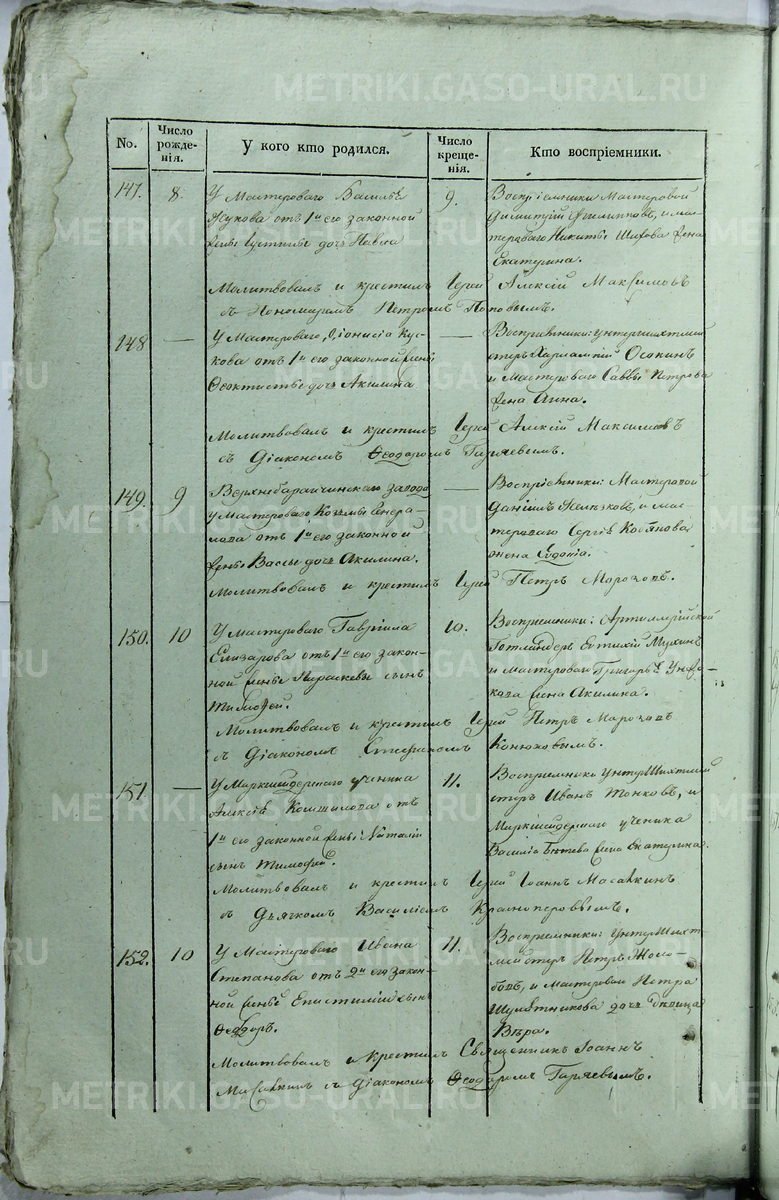 METRIKI.GASO-URAL.RU
No.
Число рожде-
нія.
У кого кто родился.
Число креще-
нія.
Кто воспріемники.
147. 8.
У Мастероваго Василья
Жукова отъ 1й его законной
жены дочь Павла
9.
Воспріемники Мастеровой
Димитрій Филипповъ, и мас-
тероваго Никиты Шахова жена
Екатерина.
Молитвовалъ и крестилъ Іерей Алексій Максимовъ
съ Пономаремъ Петромъ Поповымъ.
148 —
У Мастероваго Діонисія Кус-
кова отъ 1й его законной жены
Феоктисты дочь Акилина
—
Воспріемники: Унтершихтмей
стеръ Харлампій Осокинъ
и Мастероваго Саввы Петрова
жена Анна.
Молитвовалъ и крестилъ Іерей Алексій Максимовъ
съ Діакономъ Ѳеодоромъ Гаряевымъ.
149. 9
Верхнебаранчинскаго завода
у Мастероваго Козьмы
отъ 1й его законной
жены Вассы дочь Акилина.
—
Воспріемники: Мастеровой
Даніилъ и мас-
тероваго Сергія
жена Евдокія.
Молитвовалъ и крестилъ Іерей Петръ Морозовъ.
150. 10
У Мастероваго Гавріила
Елизарова отъ 1й его закон-
ной жены Параскевы сынъ
Тимофей.
10.
Воспріемники: Артиллерійской
Евтихій Мухинъ
и Мастероваго Григорья
жена Акилина.
Молитвовалъ и крестилъ Іерей Петръ Морозовъ
съ Діакономъ Стефаномъ Конюховымъ.
151 —
У Маркшейдерскаго ученика
Алексѣя отъ
1й его законной жены Наталіи
сынъ Тимофей.
11.
Воспріемники Унтершихтмей
стеръ Иванъ Тонковъ, и
Маркшейдерскаго ученика
Василія жена Екатерина.
Молитвовалъ и крестилъ Іерей Іоаннъ Масалкинъ
съ Дьячкомъ Василіемъ Красноперовымъ.
152. 10
У Мастероваго Ивана
Степанова отъ 2й его закон-
ной жены Епистиміи сынъ
Ѳеодоръ.
11.
Воспріемники: Унтершихт
мейстеръ Петръ Жоло-
бовъ, и Мастероваго Петра
Шулятникова дочь дѣвица
Вѣра.
Молитвовалъ и крестилъ Священникъ Іоаннъ
Масалкинъ съ Діакономъ Ѳеодоромъ Гаряевымъ.